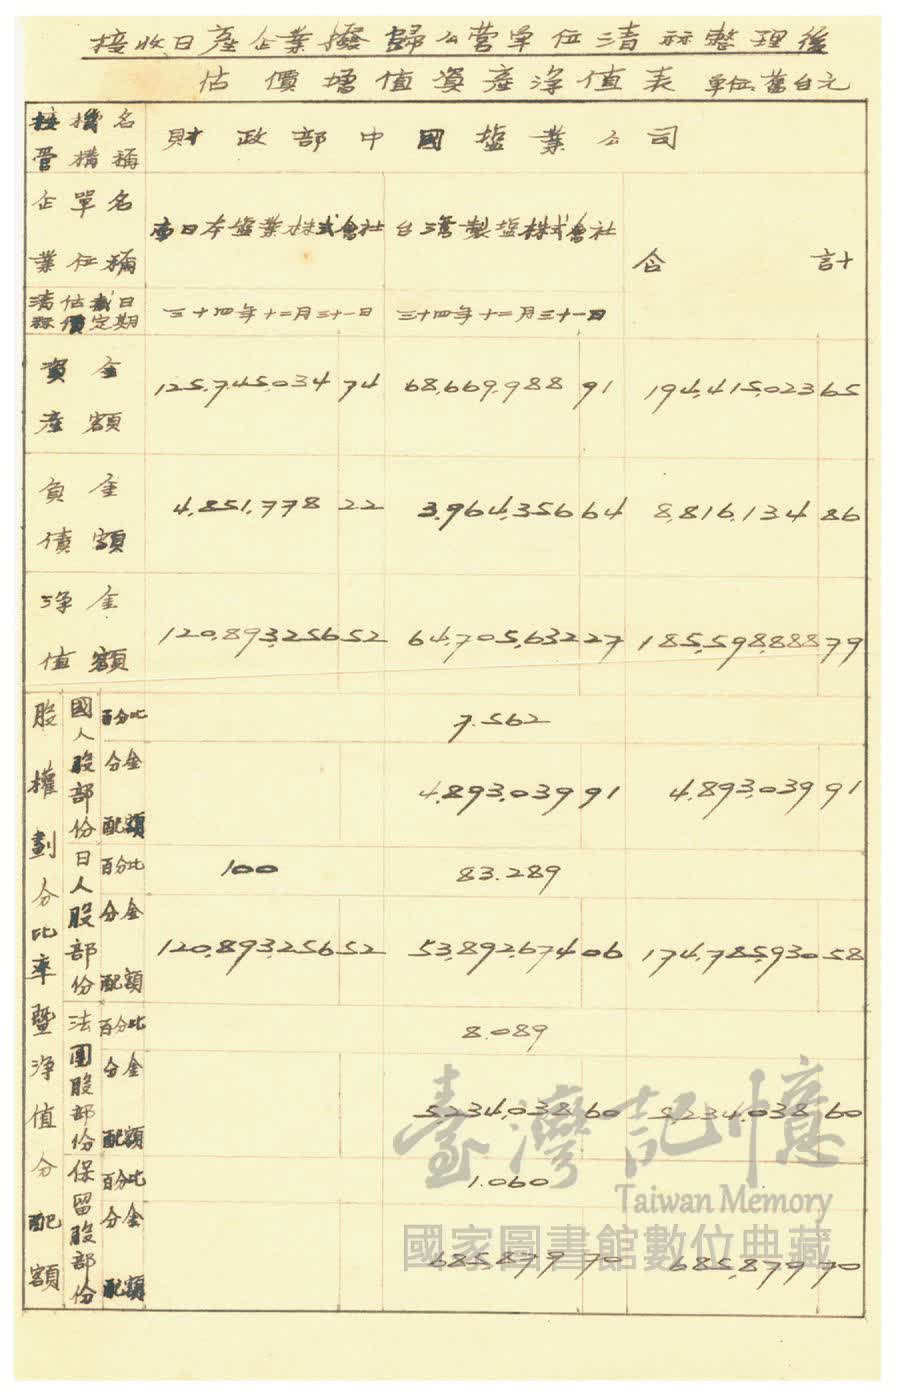 接收日產企業撥歸公營單位清祘整理後
估價增值資產淨值表 單位:舊台元
接管機構名稱 財政部中國塩業公司
企業單位名稱 南日本塩業株式會社 台灣製塩株式會社 合計
清祘估價裁定日期 三十四年十二月三十一日 三十四年十二月三十一日
資產金額 125,745,034 74 68,669,988 91 194,415,023 65
負債金額 4,851,778 22 3,964,356 64 8,816,134 86
淨值金額 120,893,256 52 64,705,632 27 185,598,888 79
股權劃分比率暨淨值分配額
國人股部份 百分比 7.562
分配金額 4,893,039 91 4,893,039 91
日人股部份 百分比 100 83.289
分配金額 120,893,256 52 53,892,674 06 174,785,930 58
法團股部份 百分比 8.089
分配金額 5,234,038 60 5,234,038 60
保留股部份 百分比 1.060
分配金額 685,879 70 685,879 70
臺灣記憶
Taiwan Memory
國家圖書館數位典藏